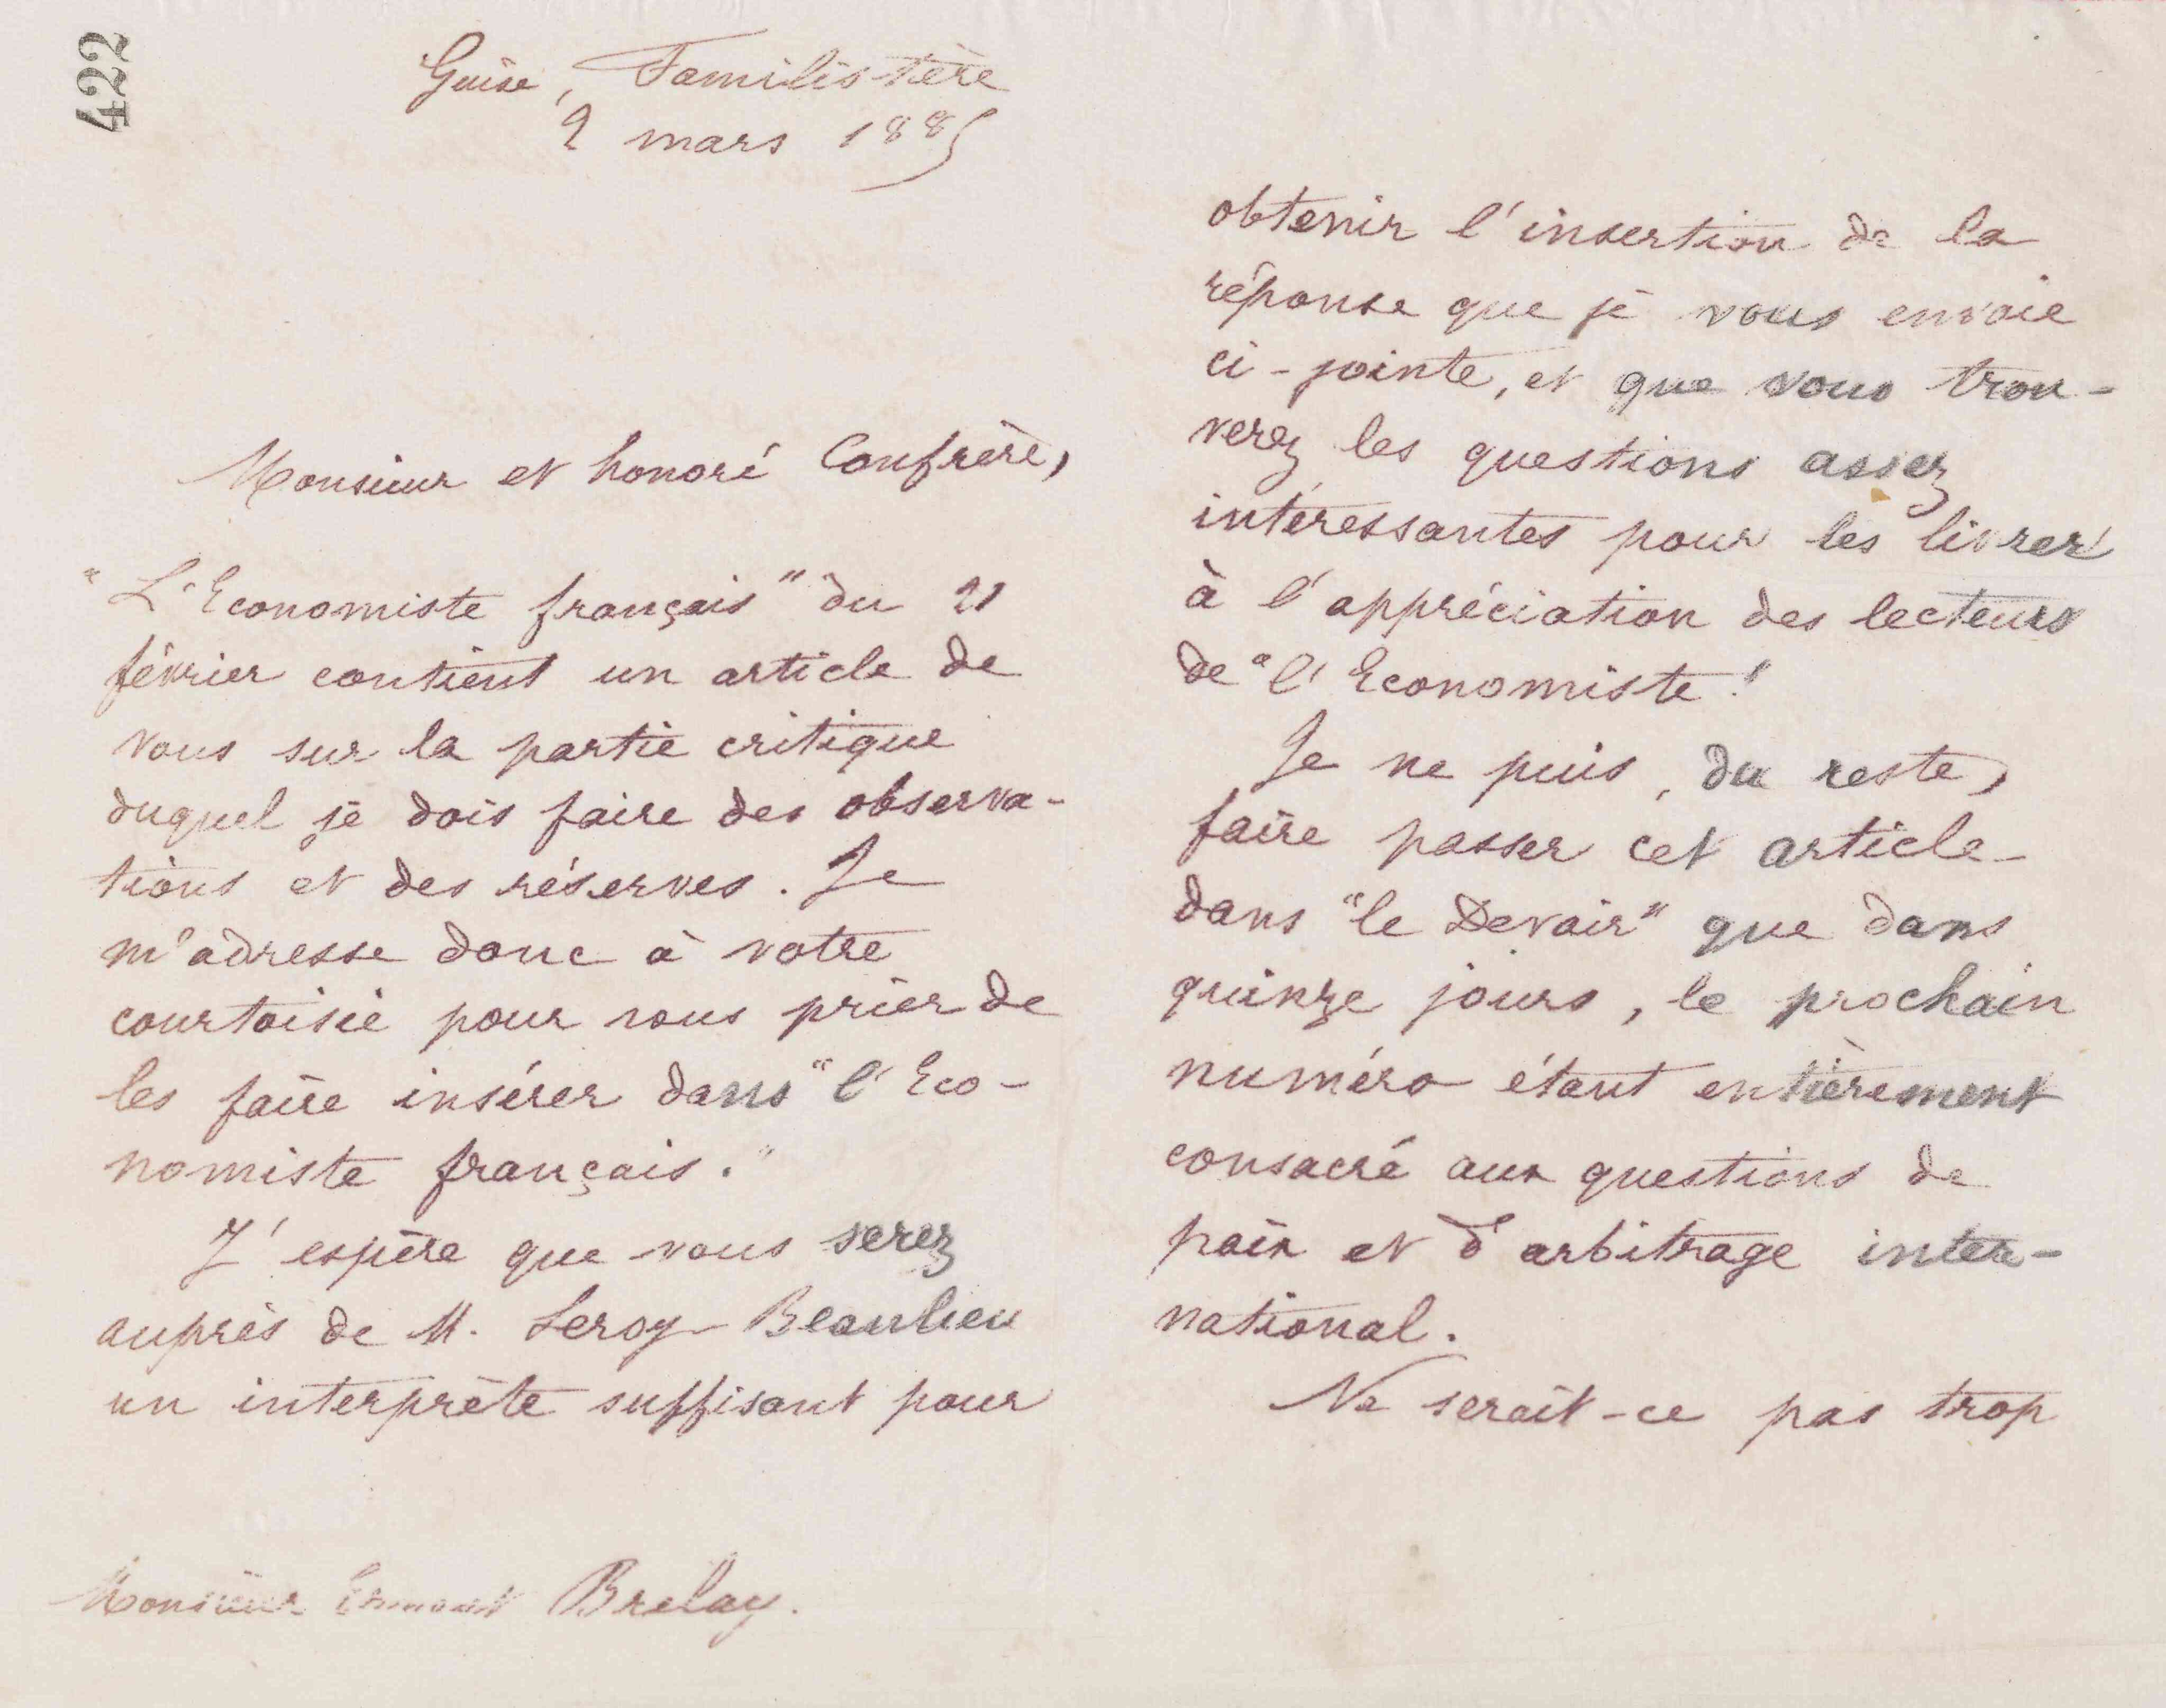 422
Guise, Familistère
2 mars 1885
Monsieur et honoré Confrère,
"L'Economiste français" du 21
février contient un article de
vous sur la partie critique
duquel je dois faire des observa-
tions et des réserves. Je
m'adresse donc à votre
courtoisie pour vous prier de
les faire insérer dans "l'Eco-
nomiste français."
J'espère que vous serez
auprès de M. Leroy-Beaulieu
un interprète suffisant pour
Monsieur Ernest Brelay.
obtenir l'insertion de la
réponse que je vous envoie
ci-jointe, et que vous trou-
verez les questions assez
intéressantes pour les livrer
à l'appréciation des lecteurs
de "l'Economiste."
Je ne puis, du reste,
faire passer cet article
dans "le Devoir" que dans
quinze jours, le prochain
numéro étant entièrement
consacré aux questions de
paix et d'arbitrage inter-
national.
Ne serait-ce pas trop